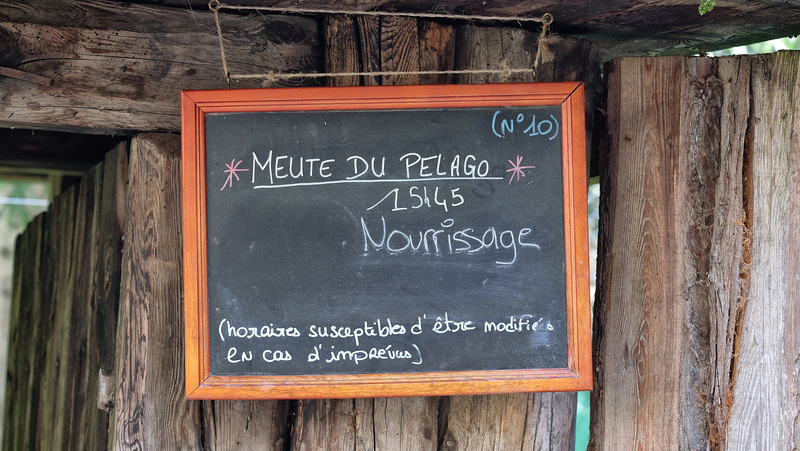 (N°10)
* MEUTE DU PELAGO *
15h45
Nourrissage
(horaires susceptibles d'être modifiés
en cas d'imprévus)